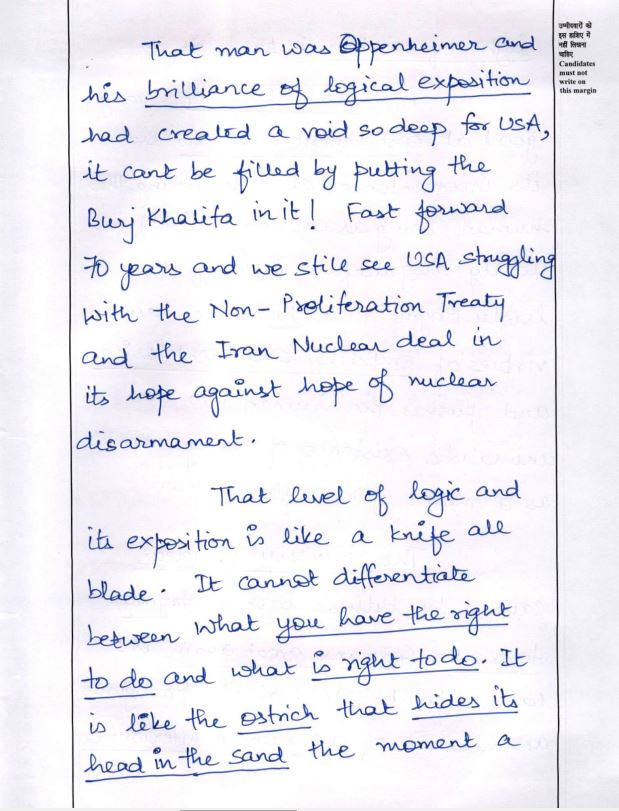 उम्मीदवारों को
इस हाशिए में
नहीं लिखना
चाहिए
Candidates
must not
write on
this margin
That man was Oppenheimer and
his brilliance of logical exposition
had created a void so deep for USA,
it cant be filled by putting the
Burj Khalifa in it! Fast forward
70 years and we still see USA struggling
with the Non-Proliferation Treaty
and the Iran Nuclear deal in
its hope against hope of nuclear
disarmament.
That level of logic and
its exposition is like a knife all
blade. It cannot differentiate
between what you have the right
to do and what is right to do. It
is like the ostrich that hides its
head in the sand the moment a